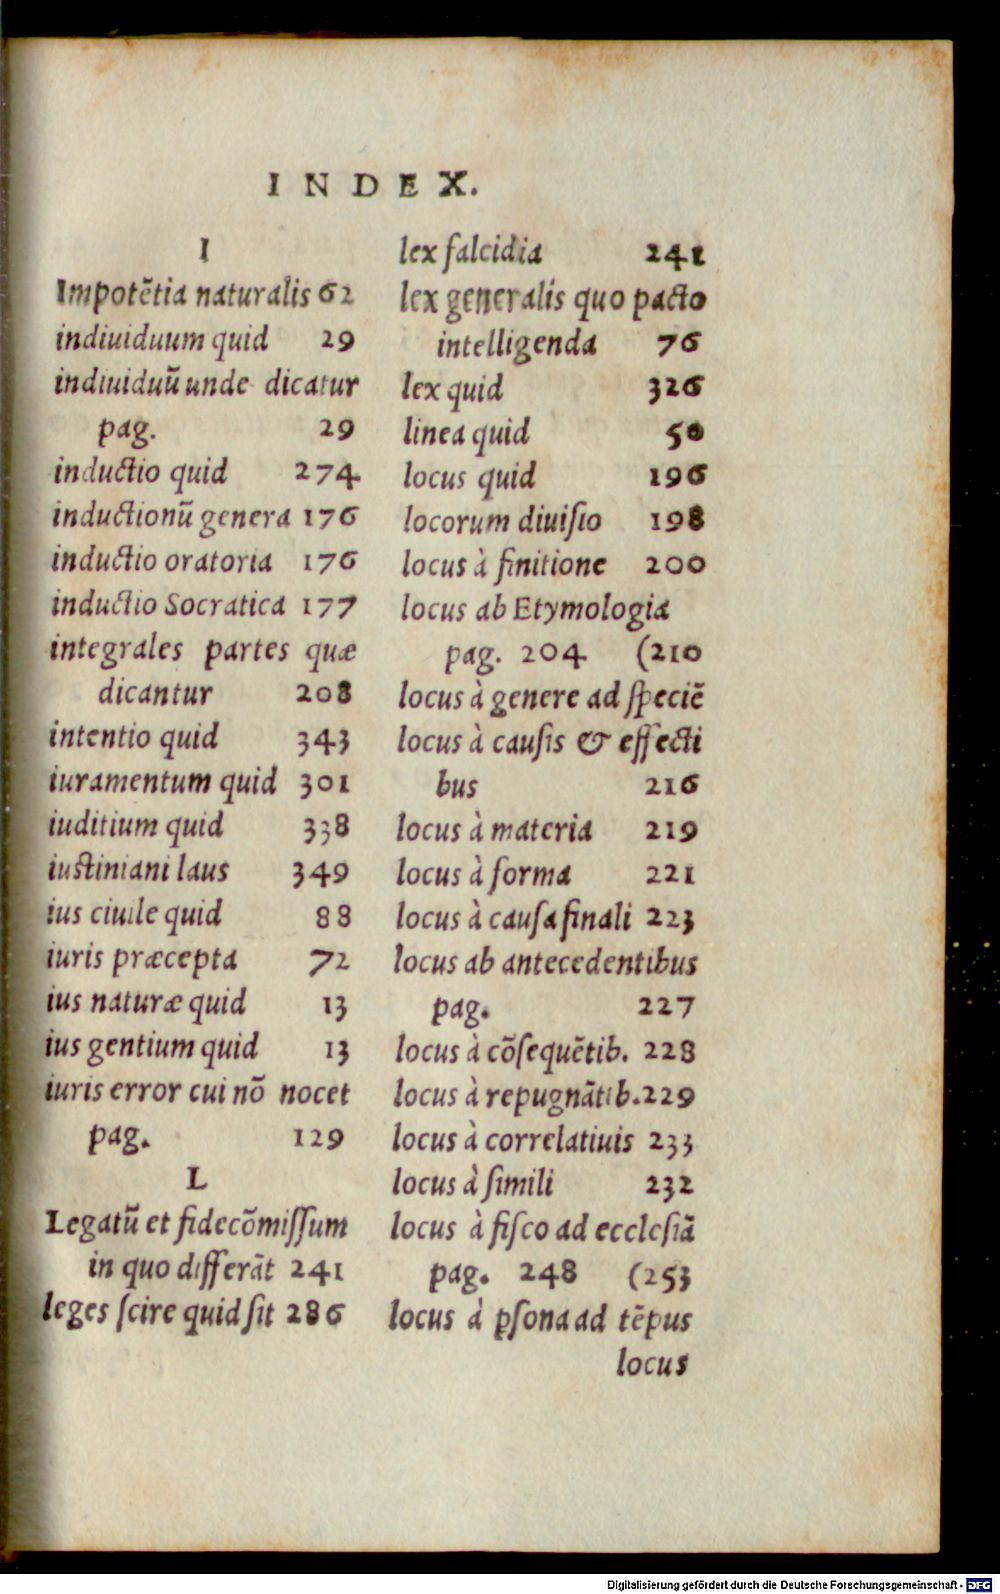 INDEX.
I
Impotẽtia naturalis 62
indiuiduum quid 29
indiuiduũ unde dicatur
pag. 29
inductio quid 274
inductionũ genera 176
inductio oratoria 176
inductio Socratica 177
integrales partes quæ
dicantur 208
intentio quid 343
iuramentum quid 301
iuditium quid 338
iustiniani laus 349
ius ciuile quid 88
iuris præcepta 72
ius naturæ quid 13
ius gentium quid 13
iuris error cui nõ nocet
pag. 129
L
Legatũ et fidecõmiſſum
in quo differãt 241
leges ſcire quid ſit 286
lex falcidia 241
lex generalis quo pacto
intelligenda 76
lex quid 326
linea quid 50
locus quid 196
locorum diuiſio 198
locus à finitione 200
locus ab Etymologia
pag. 204 (210
locus à genere ad ſpeciẽ
locus à cauſis & effecti
bus 216
locus à materia 219
locus à forma 221
locus à cauſa finali 223
locus ab antecedentibus
pag. 227
locus à cõſequẽtib. 228
locus à repugnãtib. 229
locus à correlatiuis 233
locus à ſimili 232
locus à fiſco ad eccleſiã
pag. 248 (253
locus à ꝑſona ad tẽpus
locus
Digitalisierung gefördert durch die Deutsche Forschungsgemeinschaft - DFG